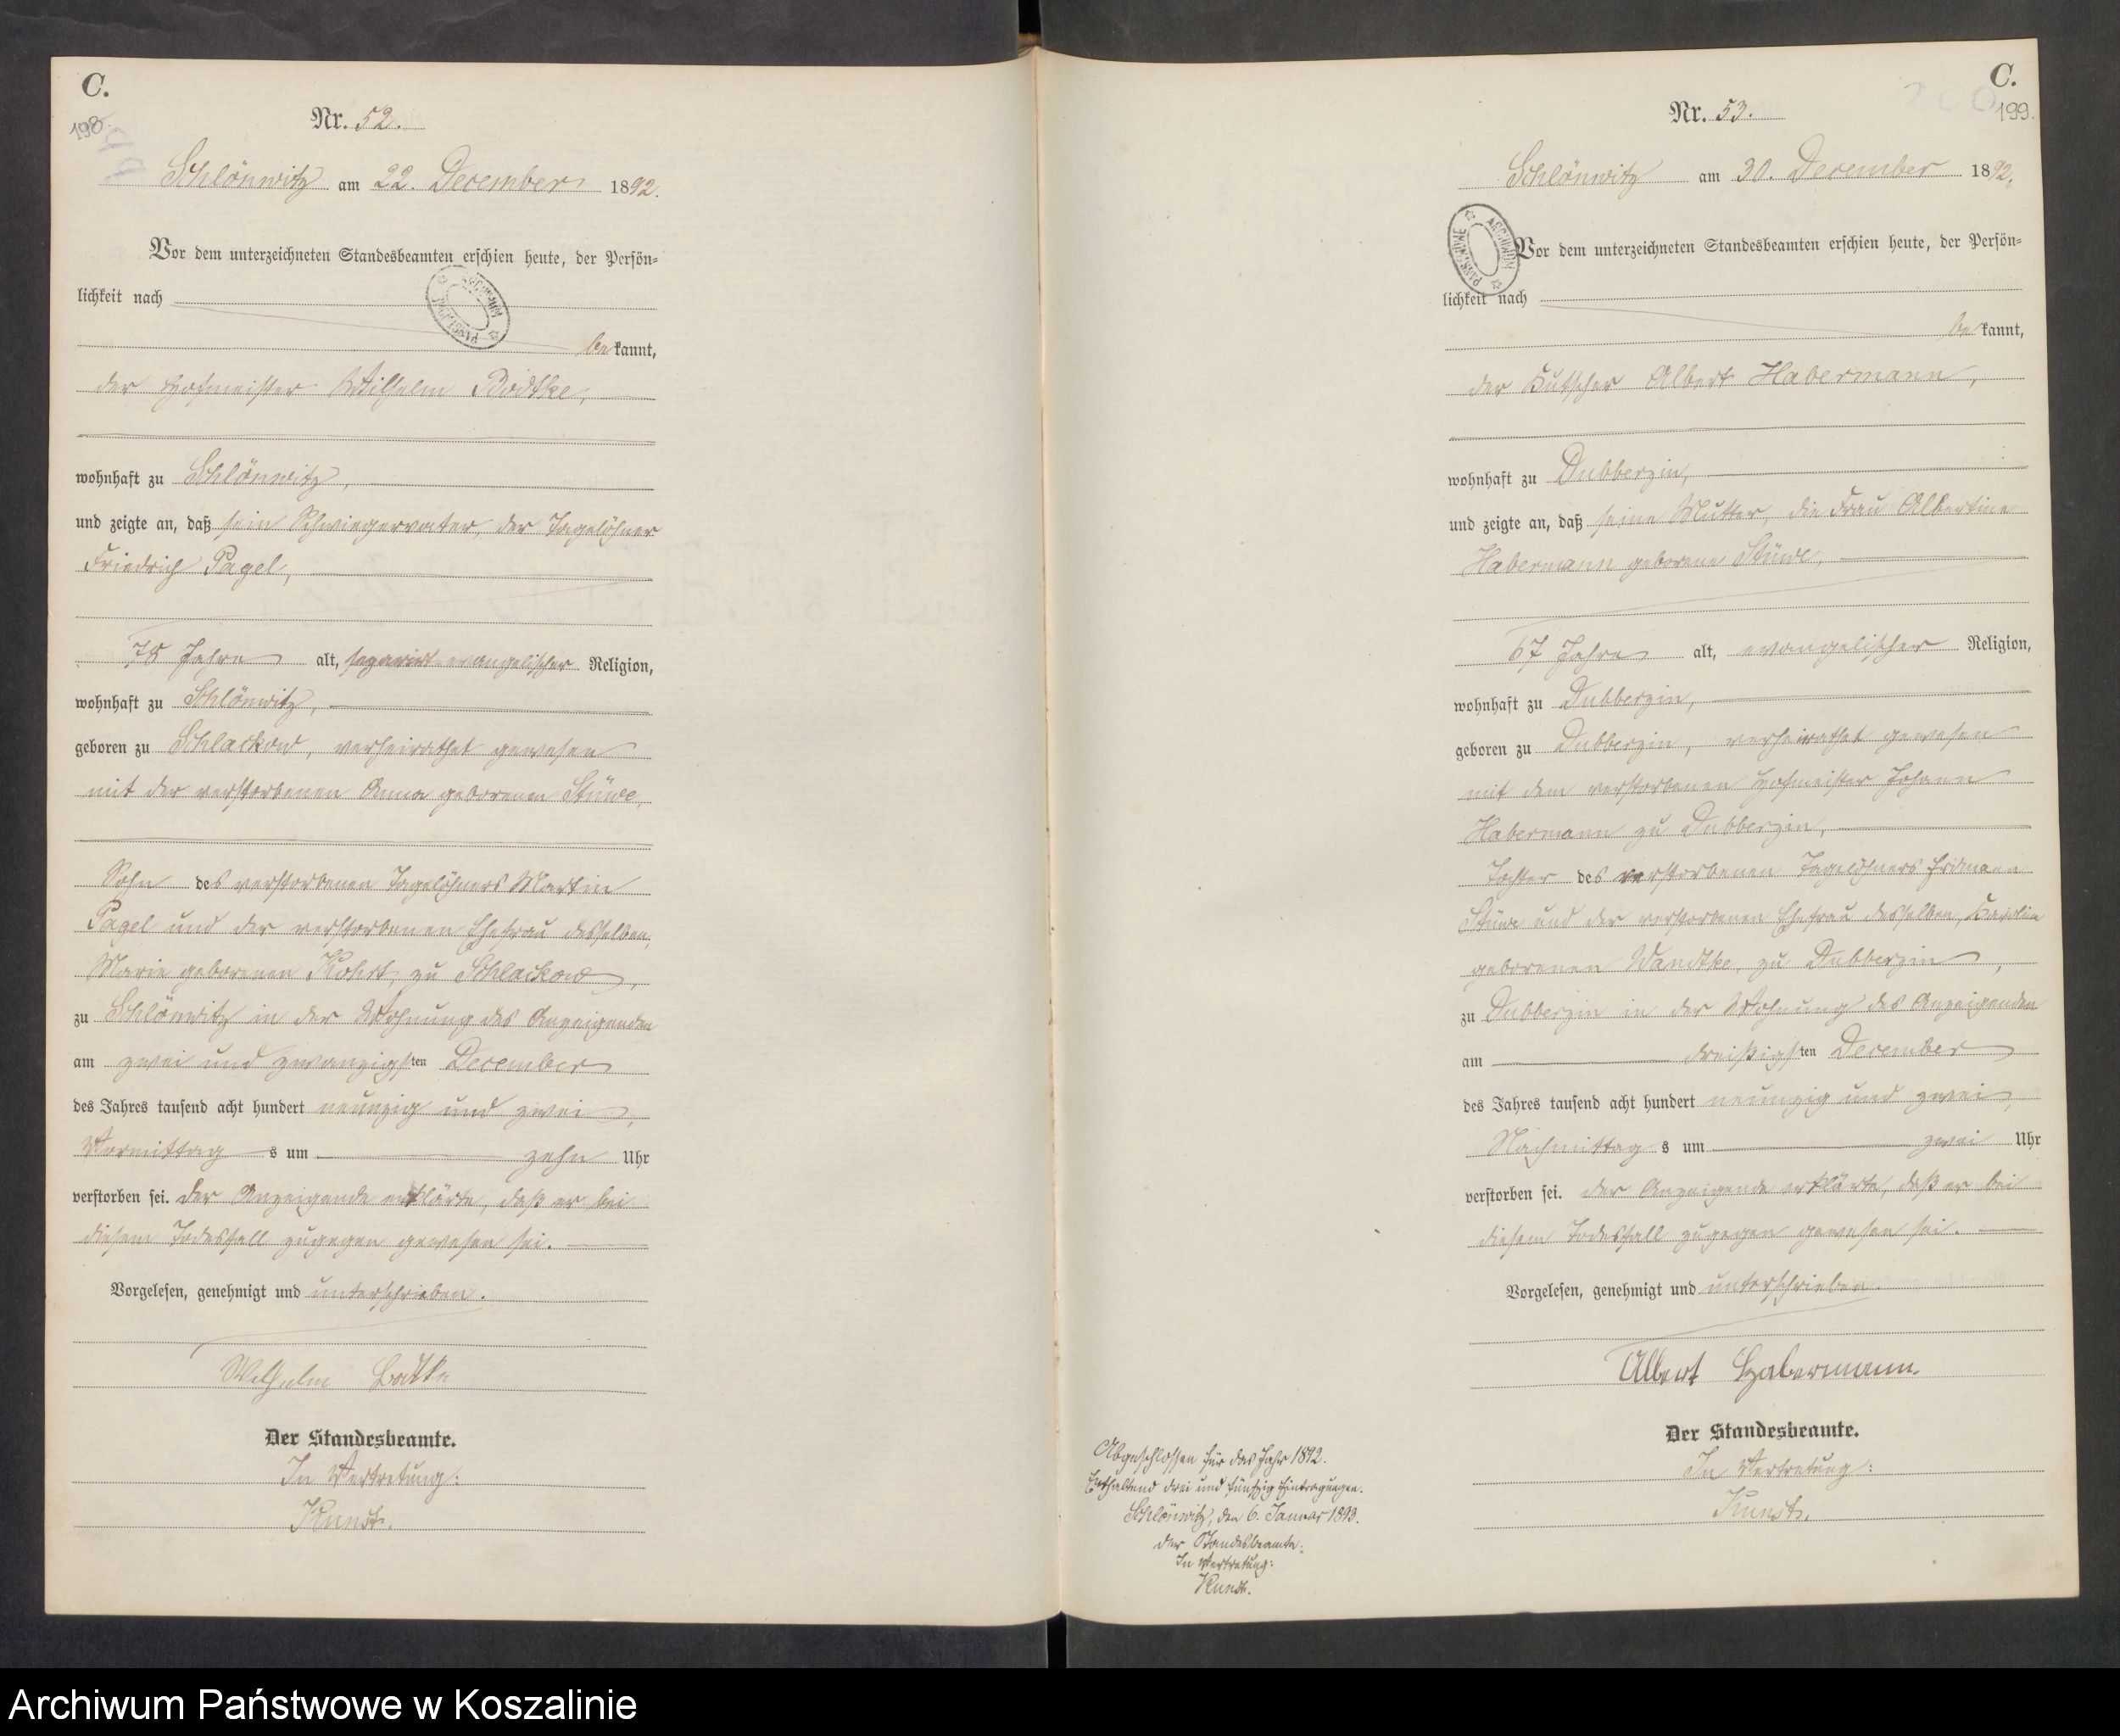 C.
198.
Nr. 52.
Schlönwitz am 22. December 1892.
Vor dem unterzeichneten Standesbeamten erschien heute, der Persön-
lichkeit nach
bekannt,
der Hofmeister Wilhelm Bödtke,
wohnhaft zu Schlönwitz,
und zeigte an, daß sein Schwiegervater, der Tagelöhner
Friedrich Pagel,
78 Jahre alt, separirt-evangelischer Religion,
wohnhaft zu Schlönwitz,
geboren zu Schlackow, verheirathet gewesen
mit der verstorbenen Anna geborenen Stüwe,
Sohn des verstorbenen Tagelöhners Martin
Pagel und der verstorbenen Ehefrau desselben,
Marie geborenen Kohrt, zu Schlackow,
zu Schlönwitz in der Wohnung des Anzeigenden
am zwei und zwanzigsten December
des Jahres tausend acht hundert neunzig und zwei,
Vormittags um zehn Uhr
verstorben sei. Der Anzeigende erklärte, daß er bei
diesem Todesfall zugegen gewesen sei.
Vorgelesen, genehmigt und unterschrieben.
Wilhelm Batke
Der Standesbeamte.
In Vertretung:
Kundt.
C.
199.
Nr. 53.
Schlönwitz am 30. December 1892.
ARCHIWUM PAŃSTWOWE
Vor dem unterzeichneten Standesbeamten erschien heute, der Persön-
lichkeit nach
bekannt,
der Kutscher Albert Habermann,
wohnhaft zu Dubberzin,
und zeigte an, daß seine Mutter, die Frau Albertine
Habermann geborene Stüwe,
67 Jahre alt, evangelischer Religion,
wohnhaft zu Dubberzin,
geboren zu Dubberzin, verheirathet gewesen
mit dem verstorbenen Hofmeister Johann
Habermann zu Dubberzin,
Tochter des verstorbenen Tagelöhners Erdmann
Stüwe und der verstorbenen Ehefrau desselben, Karolin
geborenen Wandtke, zu Dubberzin,
zu Dubberzin in der Wohnung des Anzeigenden
am dreißigsten December
des Jahres tausend acht hundert neunzig und zwei,
Nachmittags um zwei Uhr
verstorben sei. Der Anzeigende erklärte, daß er bei
diesem Todesfall zugegen gewesen sei.
Vorgelesen, genehmigt und unterschrieben.
Albert Habermann.
Der Standesbeamte.
In Vertretung:
Kundt.
Abgeschlossen für das Jahr 1892.
Enthaltend drei und fünfzig Eintragungen.
Schlönwitz, den 6. Januar 1893.
Der Standesbeamte:
In Vertretung:
Kundt.
Archiwum Państwowe w Koszalinie